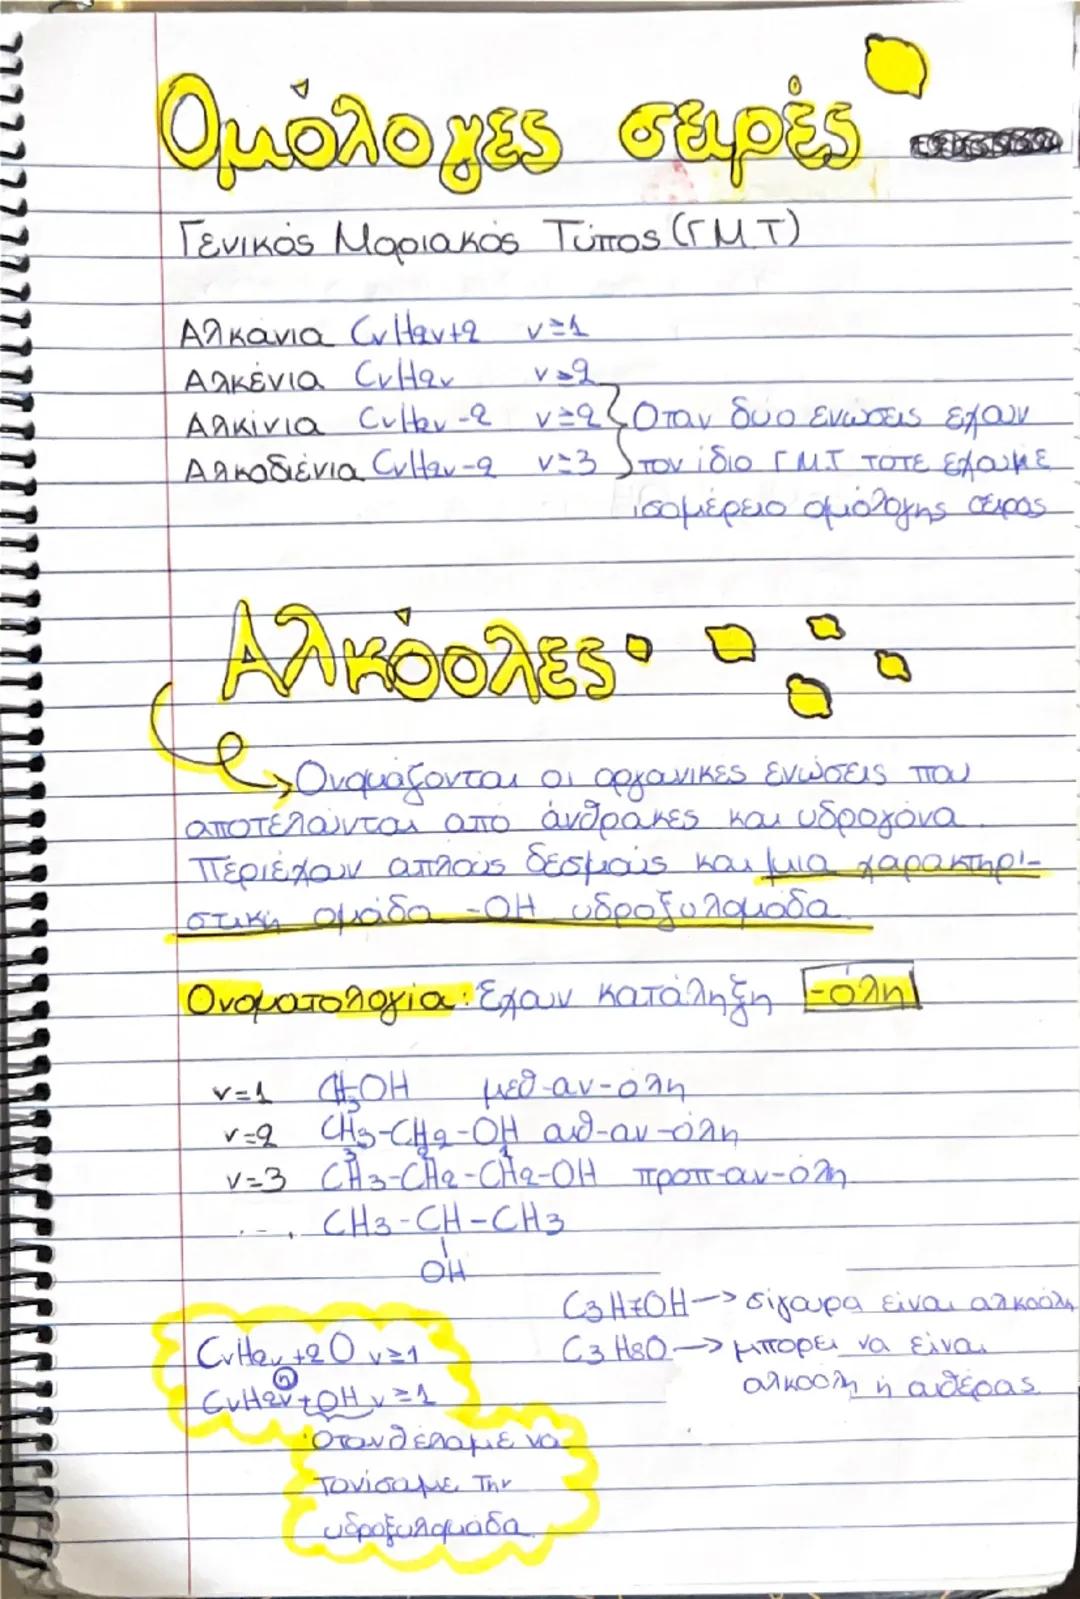 Ομόλογες σειρές
Γενικός Μοριακός Τύπος (Γ.Μ.Τ)
Αλκάνια CνH2ν+2 ν≥1
Αλκένια CνH2ν ν≥2
Αλκίνια CνH2ν-2 ν≥2 } Όταν δύο ενώσεις έχουν
Αλκαδιένια CνH2ν-2 ν≥3 } τον ίδιο Γ.Μ.Τ τότε έχουμε
ισομέρεια ομόλογης σειράς
Αλκοόλες
→ Ονομάζονται οι οργανικές ενώσεις που
αποτελούνται από άνθρακες και υδρογόνα.
Περιέχουν απλούς δεσμούς και μια χαρακτηρι-
στική ομάδα -OH υδροξυλομάδα.
Ονοματολογία: Έχουν κατάληξη -όλη
ν=1 CH3OH μεθ-αν-όλη
ν=2 CH3-CH2-OH αιθ-αν-όλη
3 2 1
ν=3 CH3-CH2-CH2-OH προπ-αν-όλη
.... CH3-CH-CH3
OH
C3H7OH → σίγουρα είναι αλκοόλη
CνH2ν+2O ν≥1 C3H8O → μπορεί να είναι
αλκοόλη ή αιθέρας
CνH2ν+OH ν≥1
Όταν θέλουμε να
τονίσουμε την
υδροξυλομάδα